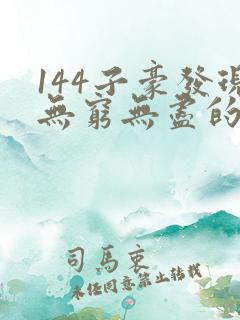 144子豪發現
無窮無盡的
司馬衷
未經同意禁止轉載